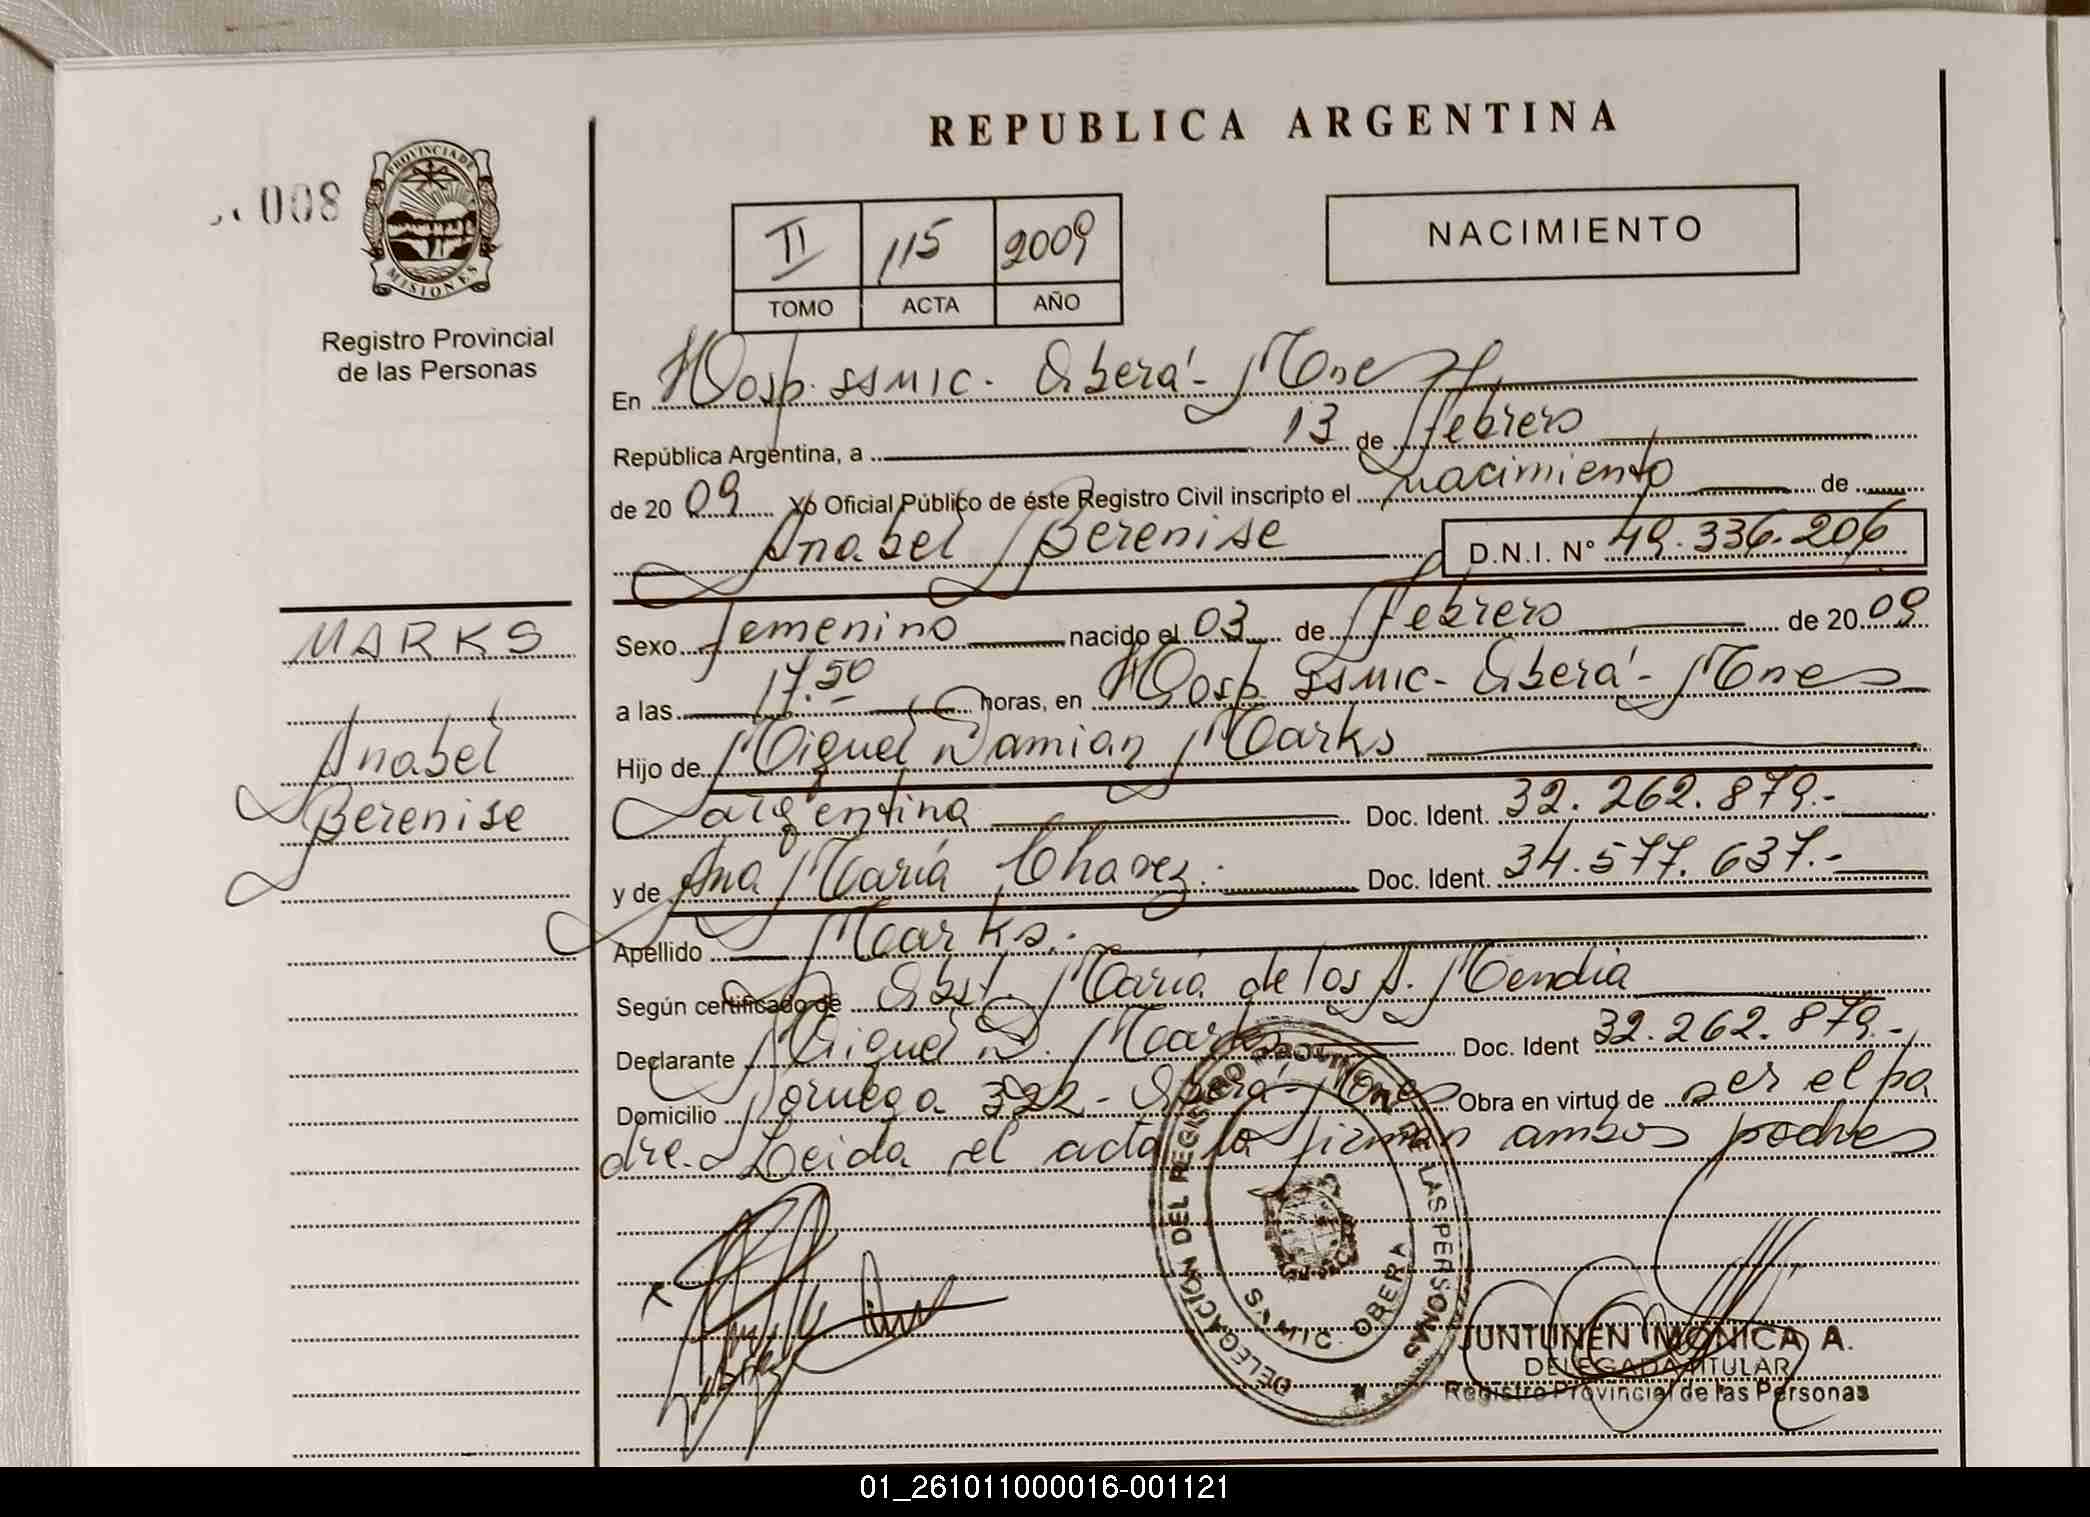 REPUBLICA ARGENTINA
008
PROVINCIA DE
MISIONES
Registro Provincial
de las Personas
II 115 2009
TOMO ACTA AÑO
NACIMIENTO
En Hosp. SSMIC. Oberá - Mnes
República Argentina, a 13 de febrero
de 2009 Yo Oficial Público de éste Registro Civil inscripto el nacimiento de
Anabel Berenise D.N.I. N° 49.336.206
Sexo femenino nacido el 03 de febrero de 2009
a las 17.50 horas, en Hosp. SSMIC - Oberá - Mnes
Hijo de Miguel Damian Marks
argentina Doc. Ident. 32.262.879.-
y de Ana María Chavez. Doc. Ident. 34.577.637.-
Apellido Marks.
Según certificado de Obst. María de los A. Mendia
Declarante Miguel D. Marks Doc. Ident 32.262.879.-
Domicilio Noruega 322 - Oberá - Mnes Obra en virtud de ser el pa
dre. Leida el acta la firman ambos padres
MARKS
Anabel
Berenise
DELEGACIÓN DEL REGISTRO PROVINCIAL DE LAS PERSONAS
OBERA
JUNTUNEN MONICA A.
DELEGADA TITULAR
Registro Provincial de las Personas
01_261011000016-001121